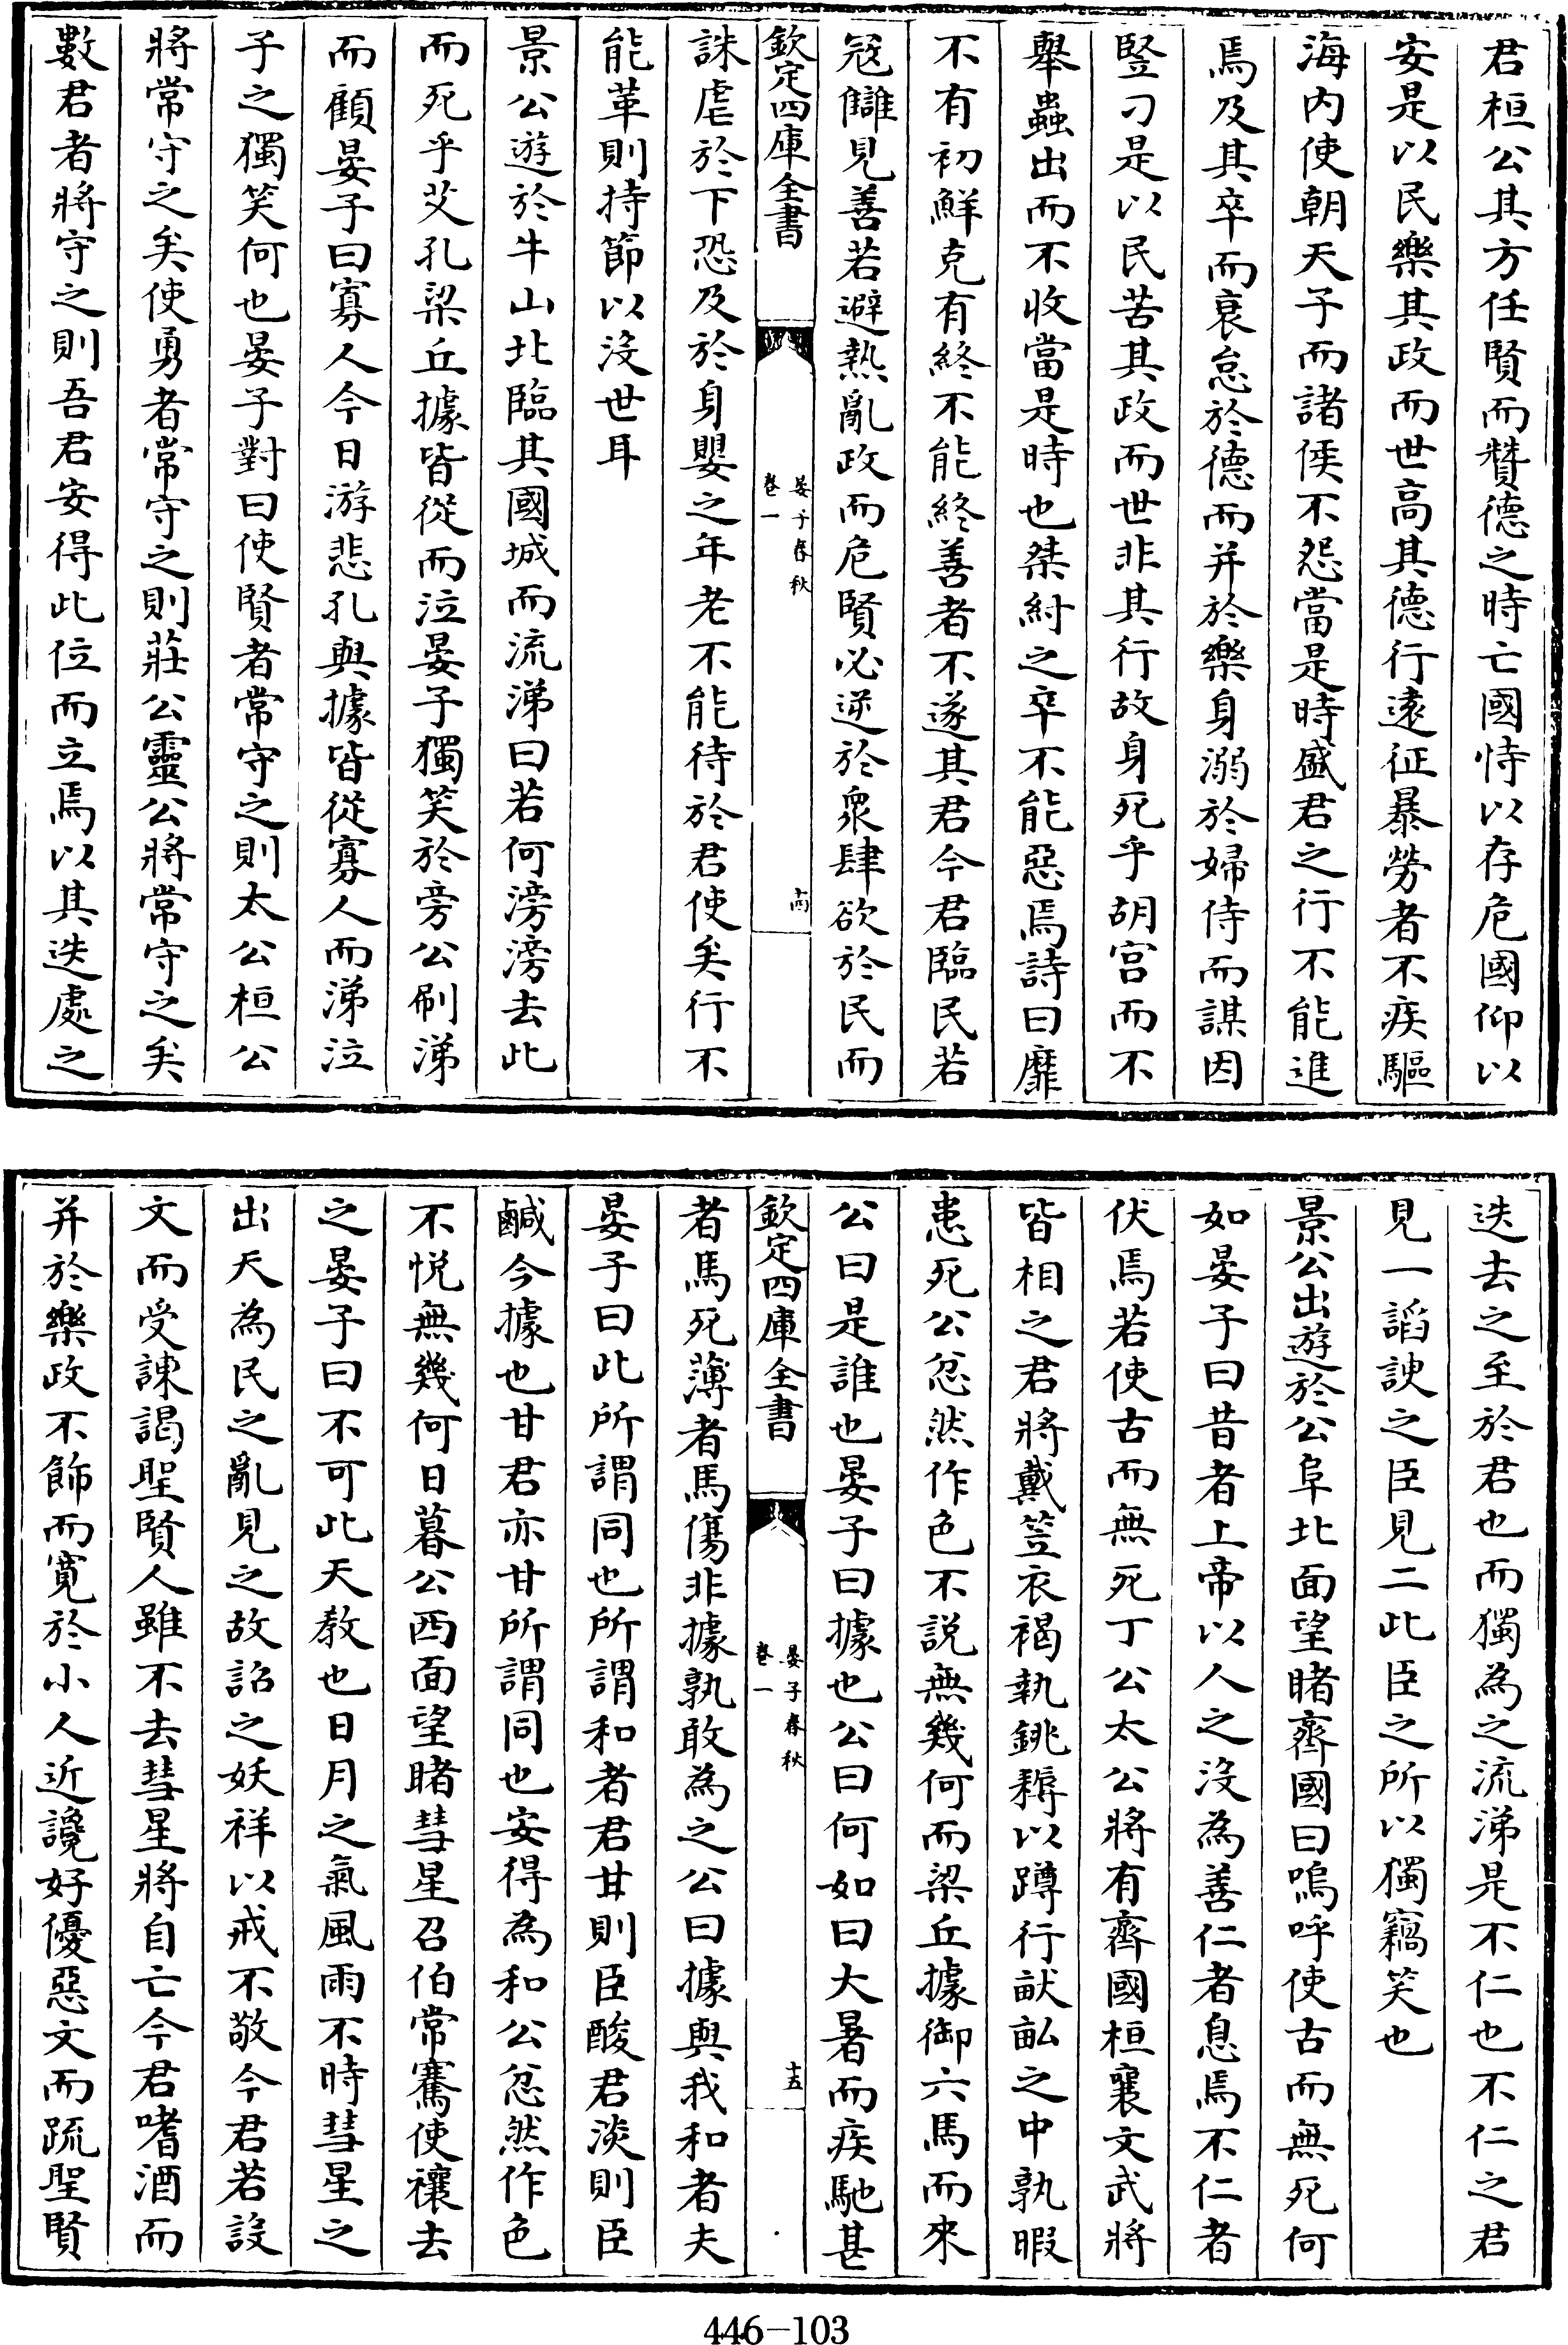 君桓公其方任賢而贊德之時亡國恃以存危國仰以
安是以民樂其政而世高其德行遠征暴勞者不疾驅
海内使朝天子而諸侯不怨當是時盛君之行不能進
焉及其卒而衰怠於德而并於樂身溺於婦侍而謀因
豎刁是以民苦其政而世非其行故身死乎胡宫而不
舉蟲出而不收當是時也桀紂之卒不能惡焉詩曰靡
不有初鮮克有終不能終善者不遂其君今君臨民若
冦讎見善若避熱亂政而危賢必逆於衆肆欲於民而
欽定四庫全書
晏子春秋
卷一
十四
誅虐於下恐及於身嬰之年老不能待於君使矣行不
能革則持節以沒世耳
景公遊於牛山北臨其國城而流涕曰若何滂滂去此
而死乎艾孔梁丘據皆從而泣晏子獨笑於旁公刷涕
而顧晏子曰寡人今日游悲孔與據皆從寡人而涕泣
子之獨笑何也晏子對曰使賢者常守之則太公桓公
將常守之矣使勇者常守之則莊公靈公將常守之矣
數君者將守之則吾君安得此位而立焉以其迭處之
迭去之至於君也而獨為之流涕是不仁也不仁之君
見一謟諛之臣見二此臣之所以獨竊笑也
景公出遊於公阜北面望睹齊國曰嗚呼使古而無死何
如晏子曰昔者上帝以人之沒為善仁者息焉不仁者
伏焉若使古而無死丁公太公將有齊國桓襄文武將
皆相之君將戴笠衣褐執銚耨以蹲行畎畝之中孰暇
患死公忿然作色不説無幾何而梁丘據御六馬而來
公曰是誰也晏子曰據也公曰何如曰大暑而疾馳甚
欽定四庫全書
晏子春秋
卷一
十五
者馬死薄者馬傷非據孰敢為之公曰據與我和者夫
晏子曰此所謂同也所謂和者君甘則臣酸君淡則臣
鹹今據也甘君亦甘所謂同也安得為和公忿然作色
不悦無幾何日暮公西面望睹彗星召伯常騫使禳去
之晏子曰不可此天教也日月之氣風雨不時彗星之
出天為民之亂見之故詔之妖祥以戒不敬今君若設
文而受諫謁聖賢人雖不去彗星將自亡今君嗜酒而
并於樂政不飾而寛於小人近讒好優惡文而疏聖賢
446-103